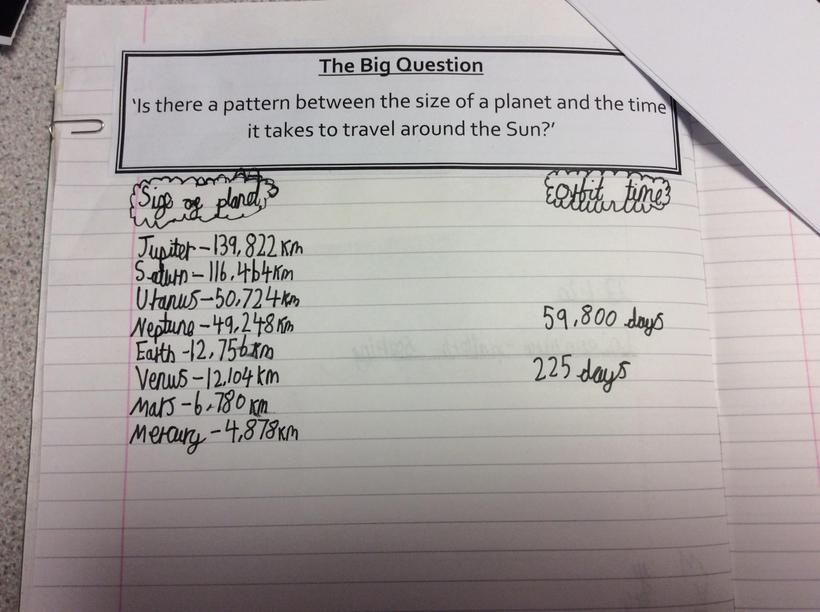 The Big Question
'Is there a pattern between the size of a planet and the time
it takes to travel around the Sun?'
Size of planet Orbit time
Jupiter - 139,822 km
Saturn - 116,464km
Uranus - 50,724km
Neptune - 49,248km 59,800 days
Earth - 12,756km
Venus - 12,104km 225 days
Mars - 6,780 km
Mercury - 4,878km